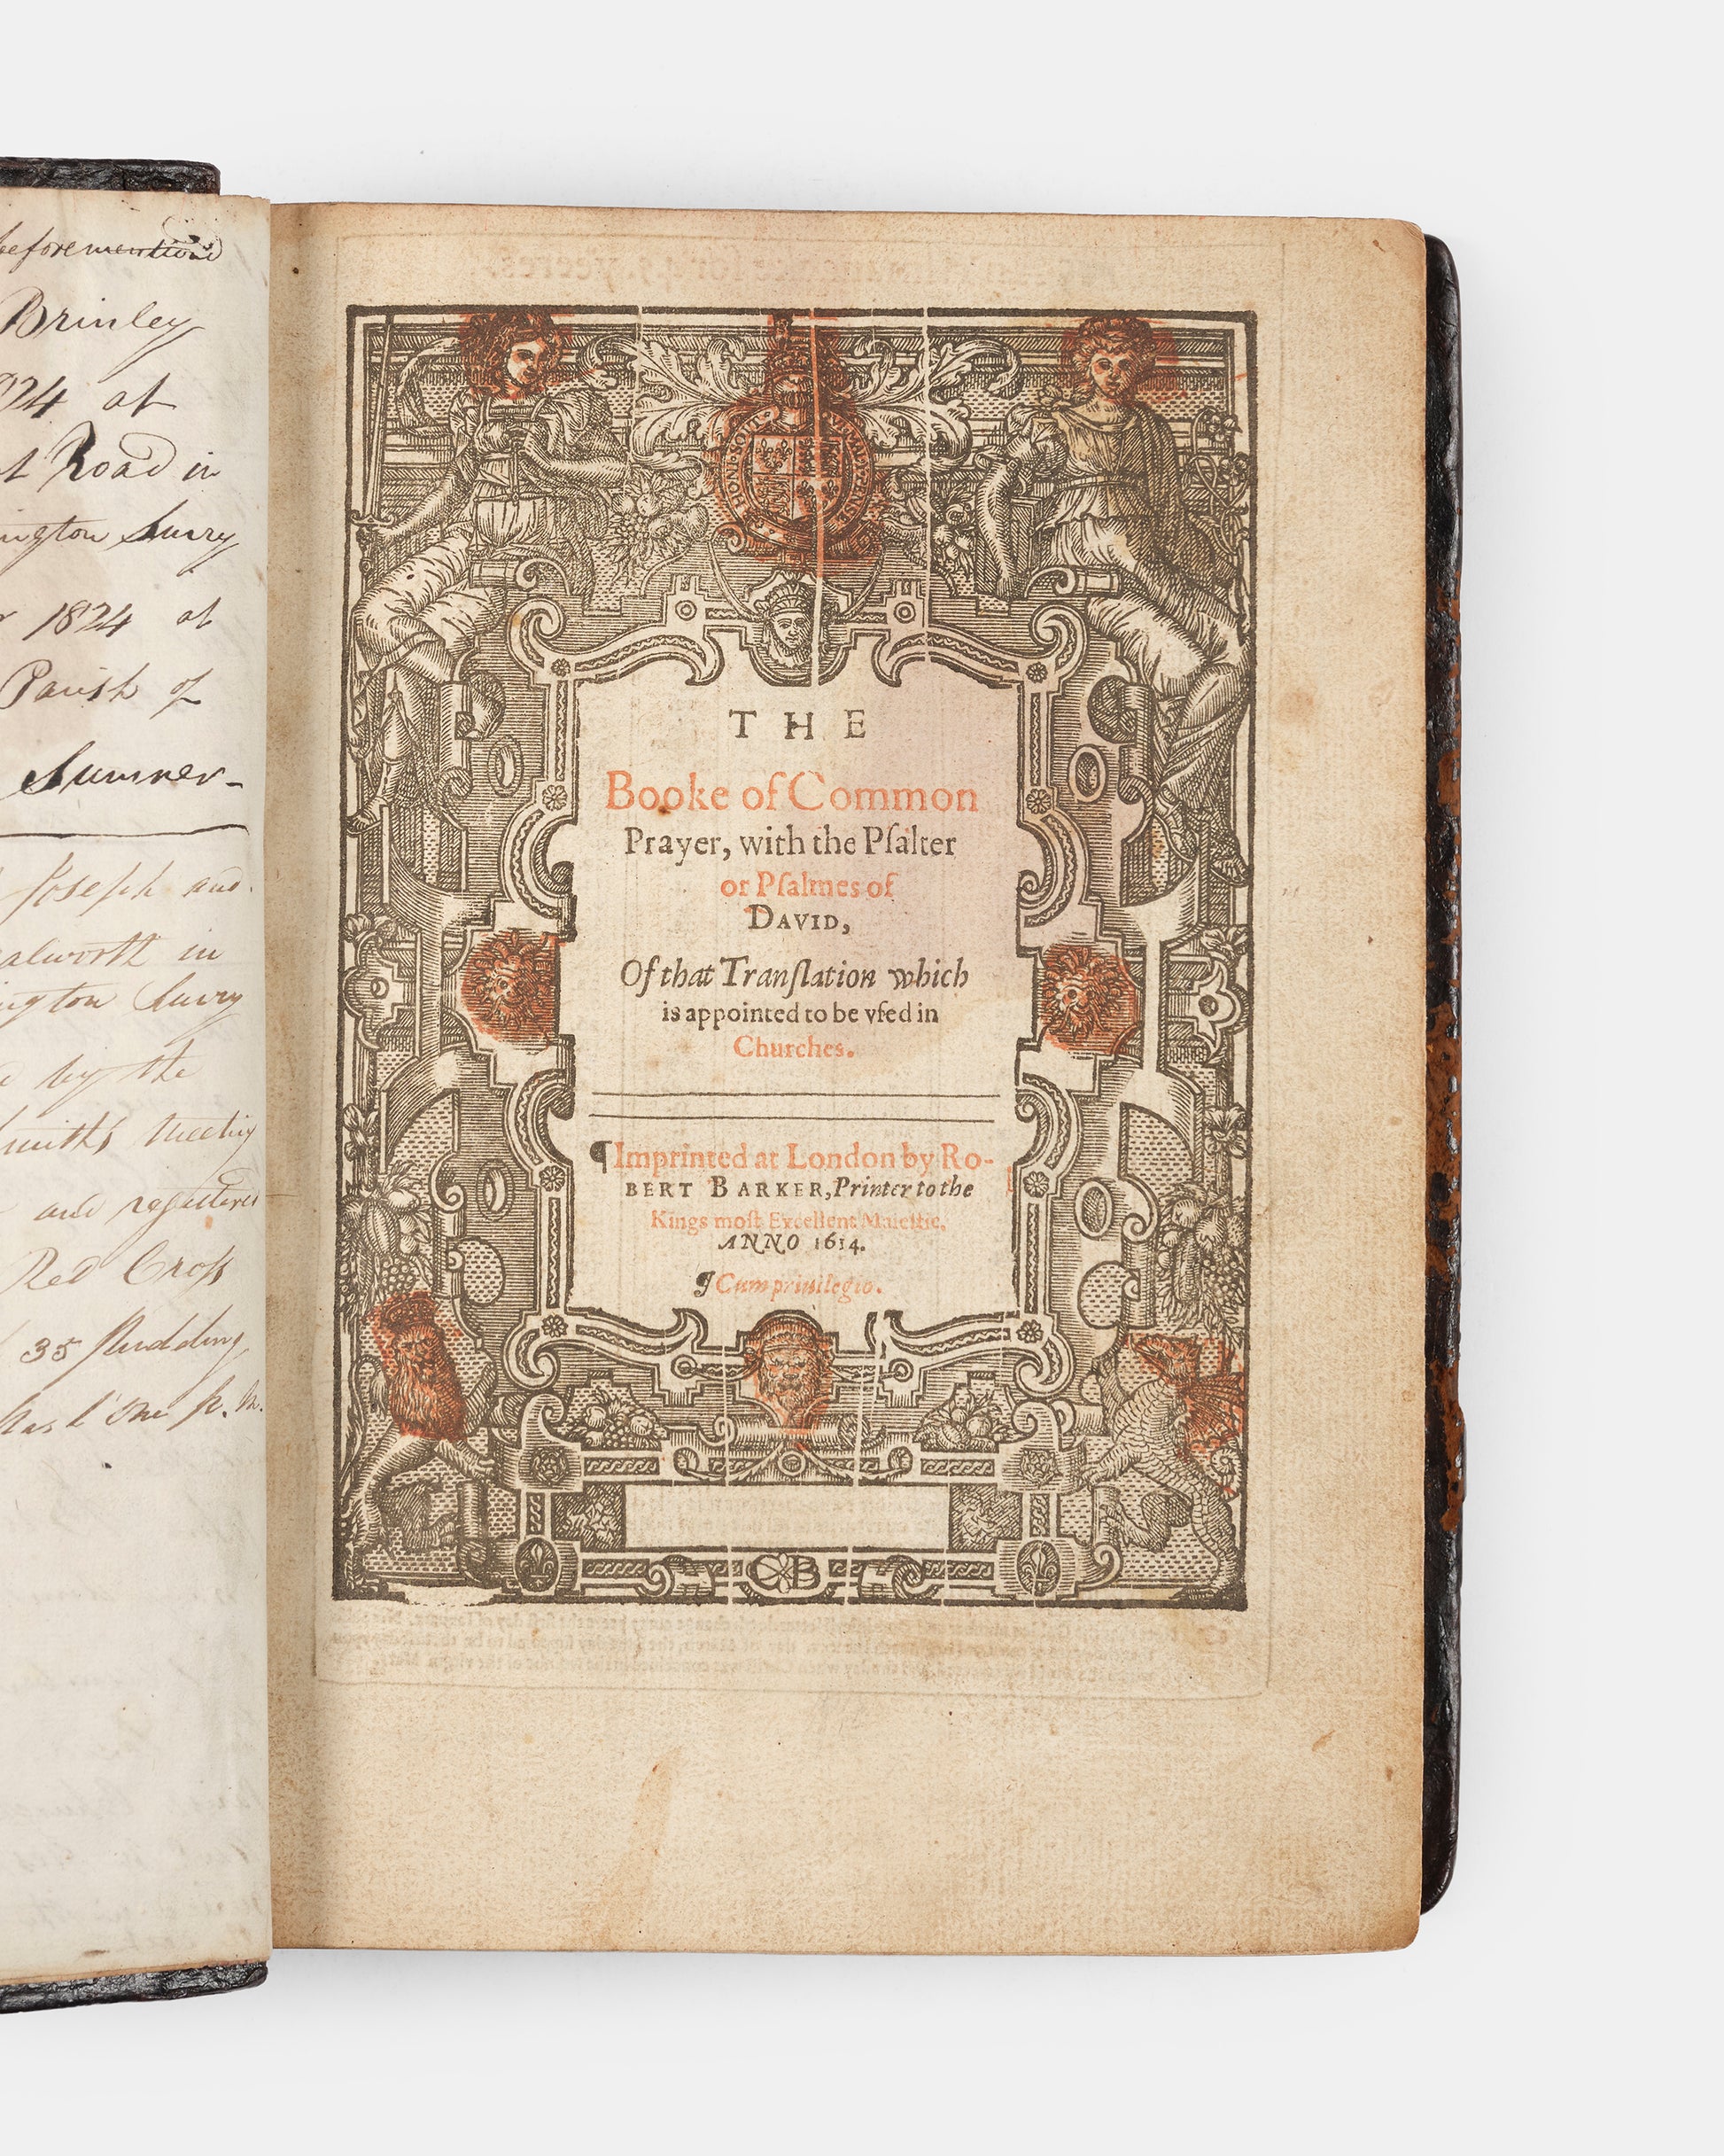 beforementiond
Brinley
1824 at
Road in
Surry
1824 at
Parish of
Sumner-
Joseph and
in
Surry
by the
Smiths Meeting
and registered
Red Cross
35 Pudding
HONI SOIT QVI MAL Y PENSE
THE
Booke of Common
Prayer, with the Pſalter
or Pſalmes of
DAVID,
Of that Tranſlation which
is appointed to be vſed in
Churches.
¶Imprinted at London by Ro-
BERT BARKER, Printer to the
Kings moſt Excellent Maieſtie,
ANNO 1614.
¶Cum priuilegio.
CB